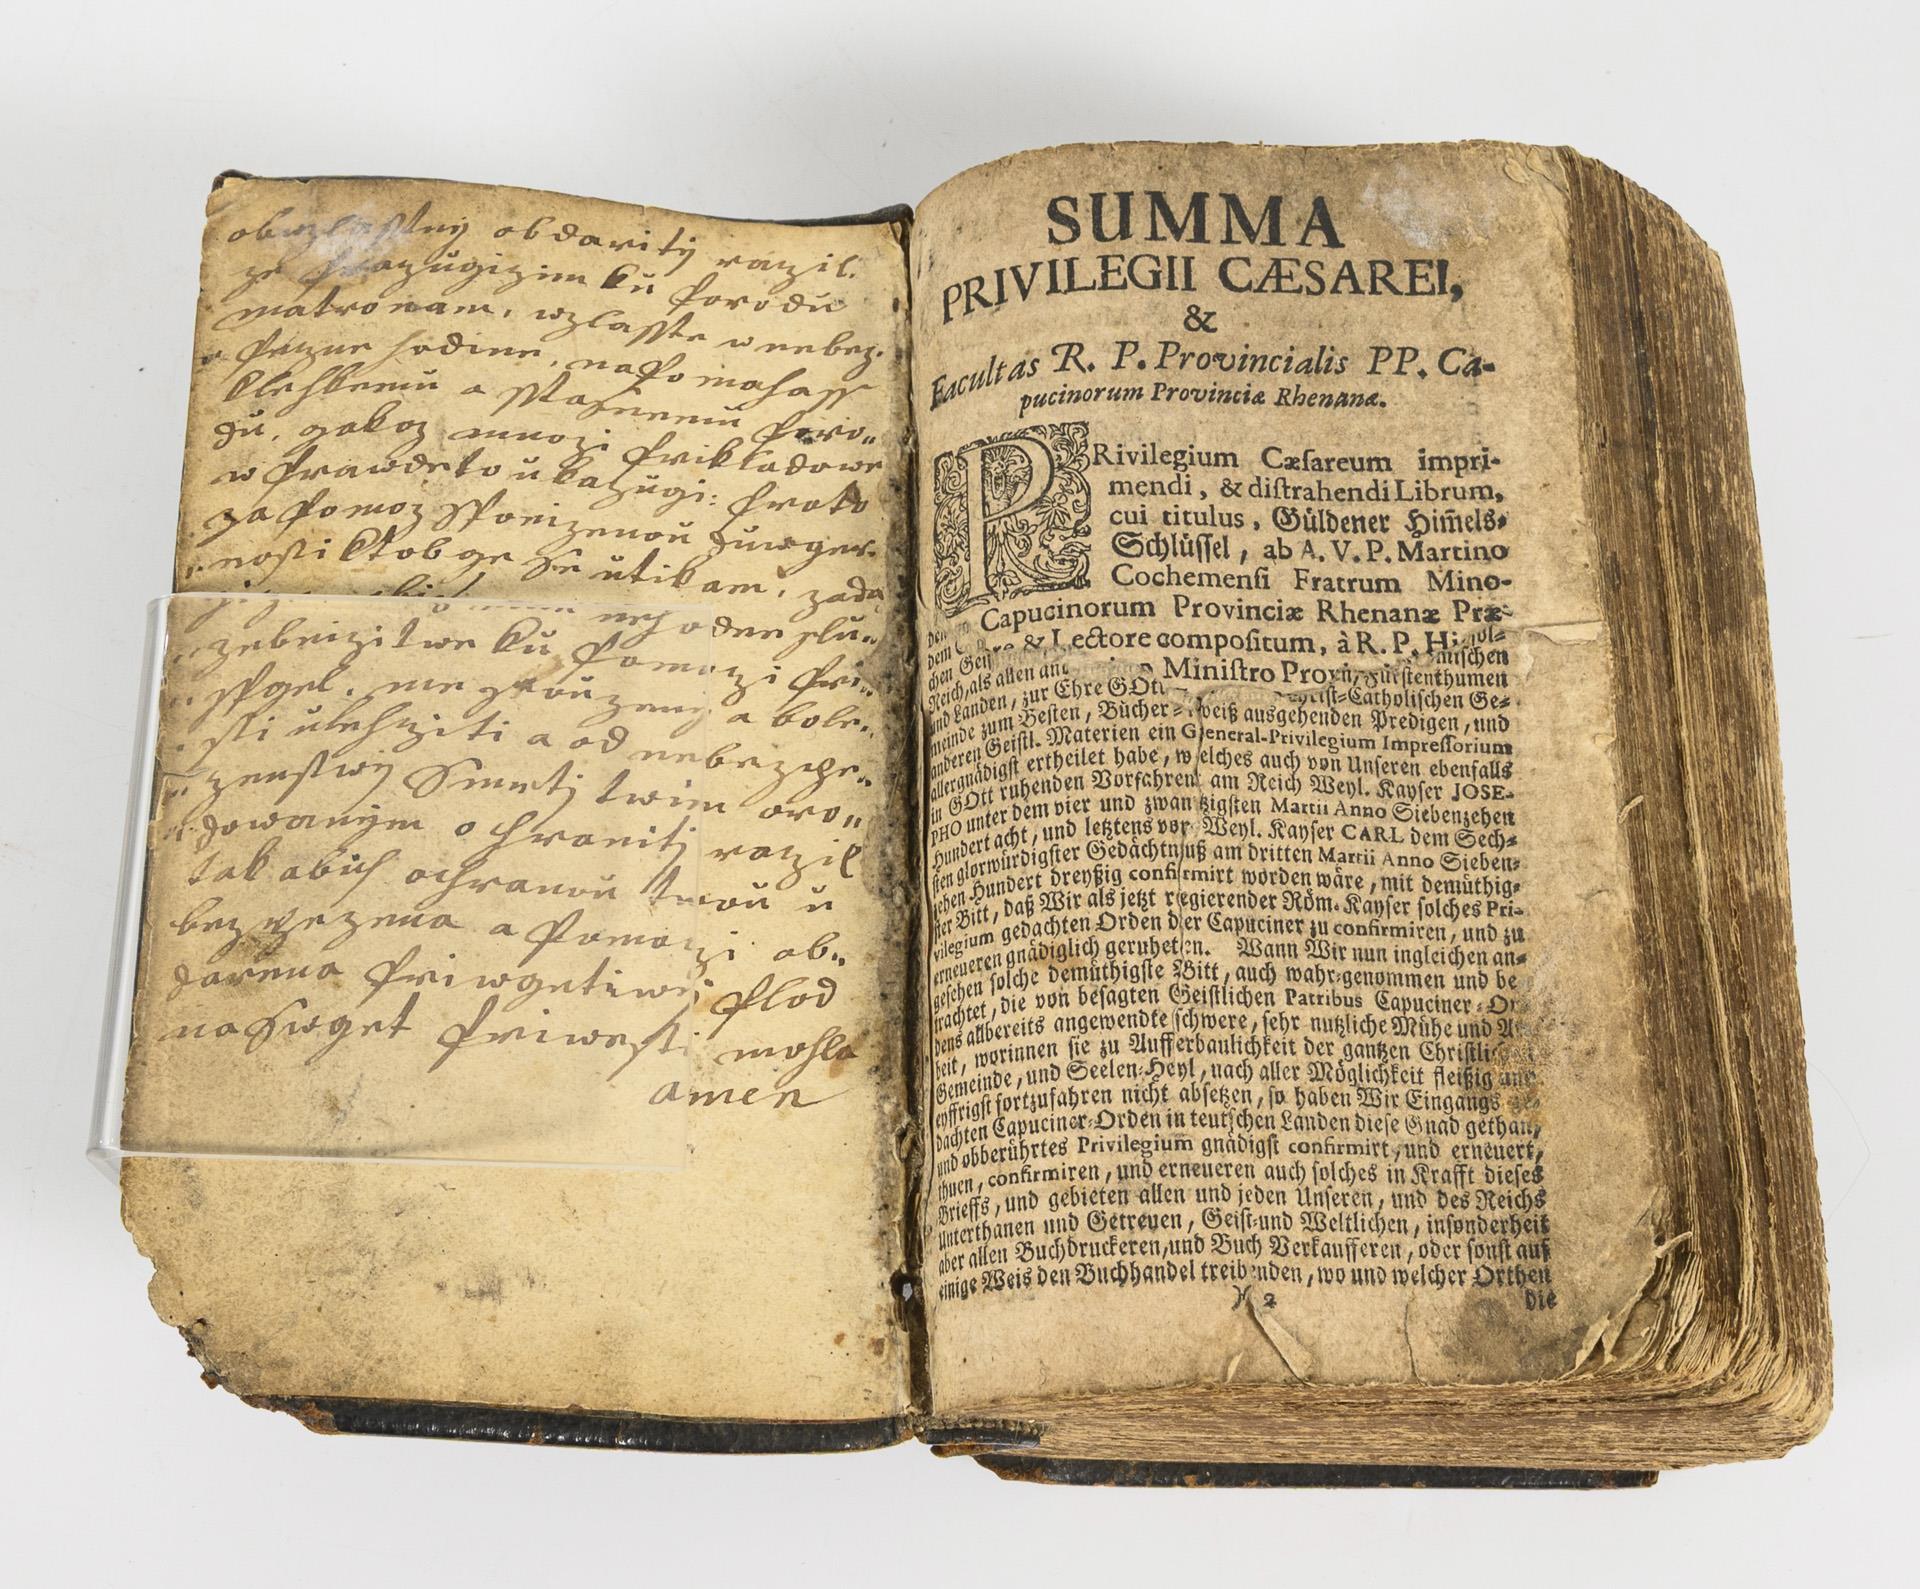 obzlasstnỹ obdaritỹ raczil.
ze praczugiczim ku porodu
matronam, wzlasste w nebez.
pecznе hodine, napomahass
klehkemu a sstastnemu poro„
du, gakoz mnozi prikladowe
w prawde to ukazugi: proto
za pomoz sponizenou duwger
nosti k tobge se utikam, zada
neho dne slu„
zebniczi twe ku pomoczi pri„
spgel, me zarouzeny a bole„
sti ulehcziti a od nebezpe„
zenstwỹ Smrtỹ twim oro„
dowanỹm ochranitỹ raczil
tak abich ochranou twou u
bezpezena a pomoczi ob„
darena priwgetiwỹ plod
na Swget priwesti mohla
amen
SUMMA
PRIVILEGII CÆSAREI,
&
Facultas R. P. Provincialis PP. Ca-
pucinorum Provinciæ Rhenanæ.
PRivilegium Cæſareum impri-
mendi, & diſtrahendi Librum,
cui titulus, Güldener Him̃els-
Schlüſſel, ab A. V. P. Martino
Cochemenſi Fratrum Mino-
Capucinorum Provinciæ Rhenanæ Præ-
& Lectore compoſitum, à R. P. Hi
Miniſtro Prov
dem
chen Geiſ miſchen
Reich, als allen and Fürſtenthumen
und Landen, zur Ehre GOtt Chriſt-Catholiſchen Ge-
meinde zum Beſten, Bücher- weiß ausgehenden Predigen, und
anderen Geiſtl. Materien ein General-Privilegium Impreſſorium
allergnädigſt ertheilet habe, welches auch von Unſeren ebenfalls
in GOtt ruhenden Vorfahren am Reich Weyl. Kayſer JOSE-
PHO unter dem vier und zwantzigſten Martii Anno Siebenzehen
Hundert acht, und letztens vor Weyl. Kayſer CARL dem Sech-
ſten glorwürdigſter Gedächtnuß am dritten Martii Anno Sieben-
zehen Hundert dreyßig confirmirt worden wäre, mit demüthig-
ſter Bitt, daß Wir als jetzt regierender Röm. Kayſer ſolches Pri-
vilegium gedachten Orden der Capuciner zu confirmiren, und zu
erneueren gnädiglich geruheten. Wann Wir nun ingleichen an-
geſehen ſolche demüthigſte Bitt, auch wahr-genommen und be
trachtet, die von beſagten Geiſtlichen Patribus Capuciner-Or
dens allbereits angewendte ſchwere, ſehr nutzliche Mühe und A
beit, worinnen ſie zu Aufferbaulichkeit der gantzen Chriſtli
Gemeinde, und Seelen-Heyl, nach aller Möglichkeit fleißig und
eyffrigſt fortzufahren nicht abſetzen, ſo haben Wir Eingangs ge-
dachten Capuciner-Orden in teutſchen Landen dieſe Gnad gethan,
und obberührtes Privilegium gnädigſt confirmirt, und erneuert,
thuen, confirmiren, und erneueren auch ſolches in Krafft dieſes
Brieffs, und gebieten allen und jeden Unſeren, und des Reichs
Unterthanen und Getreuen, Geiſt-und Weltlichen, inſonderheit
aber allen Buchdruckeren, und Buch Verkaufferen, oder ſonſt auf
einige Weis den Buchhandel treibenden, wo und welcher Orthen
2
die